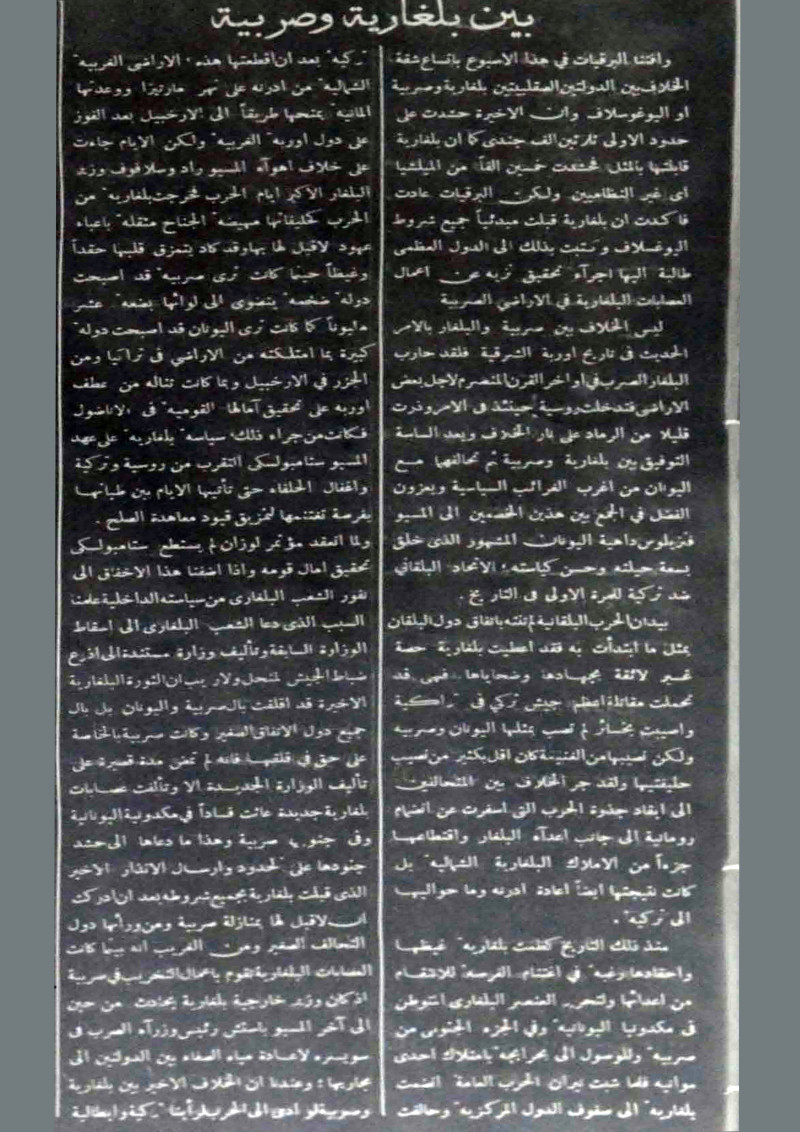 بين بلغارية وصربية
وافتنا البرقيات في هذا الاسبوع باتساع شقة
الخلاف بين الدولتين الصقلبيتين بلغارية وصربية
او اليوغوسلاف وان الاخيرة حشدت على
حدود الاولى ثلاثين الف جندى كما ان بلغارية
قابلتها بالمثل فحشدت خمسين الفاً من الميلشيا
اى غير النظاميين ولكن البرقيات عادت
فاكدت ان بلغارية قبلت مبدئياً جميع شروط
اليوغسلاف وكتبت بذلك الى الدول العظمى
طالبة اليها اجرآء تحقيق نزيه عن اعمال
العصابات البلغارية في الاراضي الصربية
ليس الخلاف بين صربية والبلغار بالامر
الحديث في تاريخ اوربة الشرقية فلقد حارب
البلغار الصرب في اواخر القرن المنصرم لاجل بعض
الاراضى فتدخلت روسية حينئذ فى الامر وذرت
قليلا من الرماد على نار الخلاف ويعد الساسة
التوفيق بين بلغارية وصربية ثم تحالفهما مع
اليونان من اغرب الغرائب السياسية ويعزون
الفضل في الجمع بين هذين الخصمين الى المسيو
فنزيلوس داهية اليونان المشهور الذى خلق
بسعة حيلته وحسن كياسته؛ الاتحاد البلقاني
ضد تركية للمرة الاولى فى التاريخ .
بيدان الحرب البلقانية لم تنته باتفاق دول البلقان
بمثل ما ابتدأت به فقد اعطيت بلغارية حصة
غير لائقة بجهادها وضحاياها فهى قد
تحملت مقاتلة اعظم جيش تركي في تراكية
واصيبت بخسائر لم تصب بمثلها اليونان وصربيه
ولكن نصيبها من الغنيمة كان اقل بكثير من نصيب
حليفتيها ولقد جر الخلاف بين المتحالفين
الى ايقاد جذوة الحرب التى اسفرت عن انضمام
رومانية الى جانب اعدآء البلغار واقتطاعها
جزءاً من الاملاك البلغارية الشماليه بل
كانت نتيجتها ايضاً اعادة ادرنه وما حواليها
الى تركيه .
منذ ذلك التاريخ كظمت بلغاريه غيظها
واحقادها رغبه في اغتنام الفرصه للانتقام
من اعدائها ولتحرير العنصر البلغارى المتوطن
فى مكدونيا اليونانيه وفي الجزء الجنوبى من
صربيه وللوصول الى بحر ايجه بامتلاك احدى
موانيه فلما شبت نيران الحرب العامة انضمت
بلغاريه الى صفوف الدول المركزيه وحالفت
تركيه بعد ان اقطعتها هذه الاراضى الغربيه
الشماليه من ادرنه على نهر مارتيزا ووعدتها
المانيه بمنحها طريقاً الى الارخبيل بعد الفوز
على دول اوربه الغربيه ولكن الايام جاءت
على خلاف اهوآء المسيو راد وسلافوف وزير
البلغار الاكبر ايام الحرب فخرجت بلغاريه من
الحرب كحليفاتها مهيضه الجناح مثقله باعباء
عهود لاقبل لها بها وقد كاد يتمزق قلبها حقداً
وغيظاً حينما كانت ترى صربيه قد اصبحت
دوله ضخمه ينضوى الى لوائها بضعه عشر
مليوناً كما كانت ترى اليونان قد اصبحت دوله
كبيرة بما امتلكته من الاراضي فى تراتيا ومن
الجزر في الارخبيل وبما كانت تناله من عطف
اوربه على تحقيق آمالها القوميه فى الاناضول
فكانت من جراء ذلك سياسه بلغاريه على عهد
المسيو ستامبولسكى التقرب من روسية وتركية
واغفال الحلفاء حتى تأتيها الايام بين طياتها
بفرصة تغتنمها لتمزيق قيود معاهدة الصلح .
ولما انعقد مؤتمر لوزان لم يستطع ستامبولسكى
تحقيق امال قومه واذا اضفنا هذا الاخفاق الى
نفور الشعب البلغارى من سياسته الداخلية علمنا
السبب الذى دعا الشعب البلغارى الى اسقاط
الوزارة السابقة وتأليف وزارة مستندة الى اذرع
ضباط الجيش لمنحل ولا ريب ان الثورة البلغارية
الاخيرة قد اقلقت بال صربية واليونان بل بال
جميع دول الاتفاق الصغير وكانت صربية بالخاصة
على حق فى قلقها فانه لم تمض مدة قصيرة على
تأليف الوزارة الجديدة الا وتألفت عصابات
بلغارية جديدة عاثت فساداً في مكدونية اليونانية
وفى جنوبها صربية وهذا ما دعاها الى حشد
جنودها على الحدود وارسال الانذار الاخير
الذى قبلت بلغارية بجميع شروطه بعد ان ادركت
ان لاقبل لها بمنازلة صربية ومن ورآئها دول
التحالف الصغير ومن الغريب انه بينما كانت
العصابات البلغارية تقوم باعمال التخريب في صربية
اذ كان وزير خارجية بلغارية يتحادث من حين
الى آخر المسيو باستش رئيس وزرآء الصرب فى
سويسره لاعادة مياه الصفاء بين الدولتين الى
مجاريها؛ وعندنا ان الخلاف الاخير بين بلغارية
وصربية لو ادى الى الحرب لرأينا تركية وايطالية